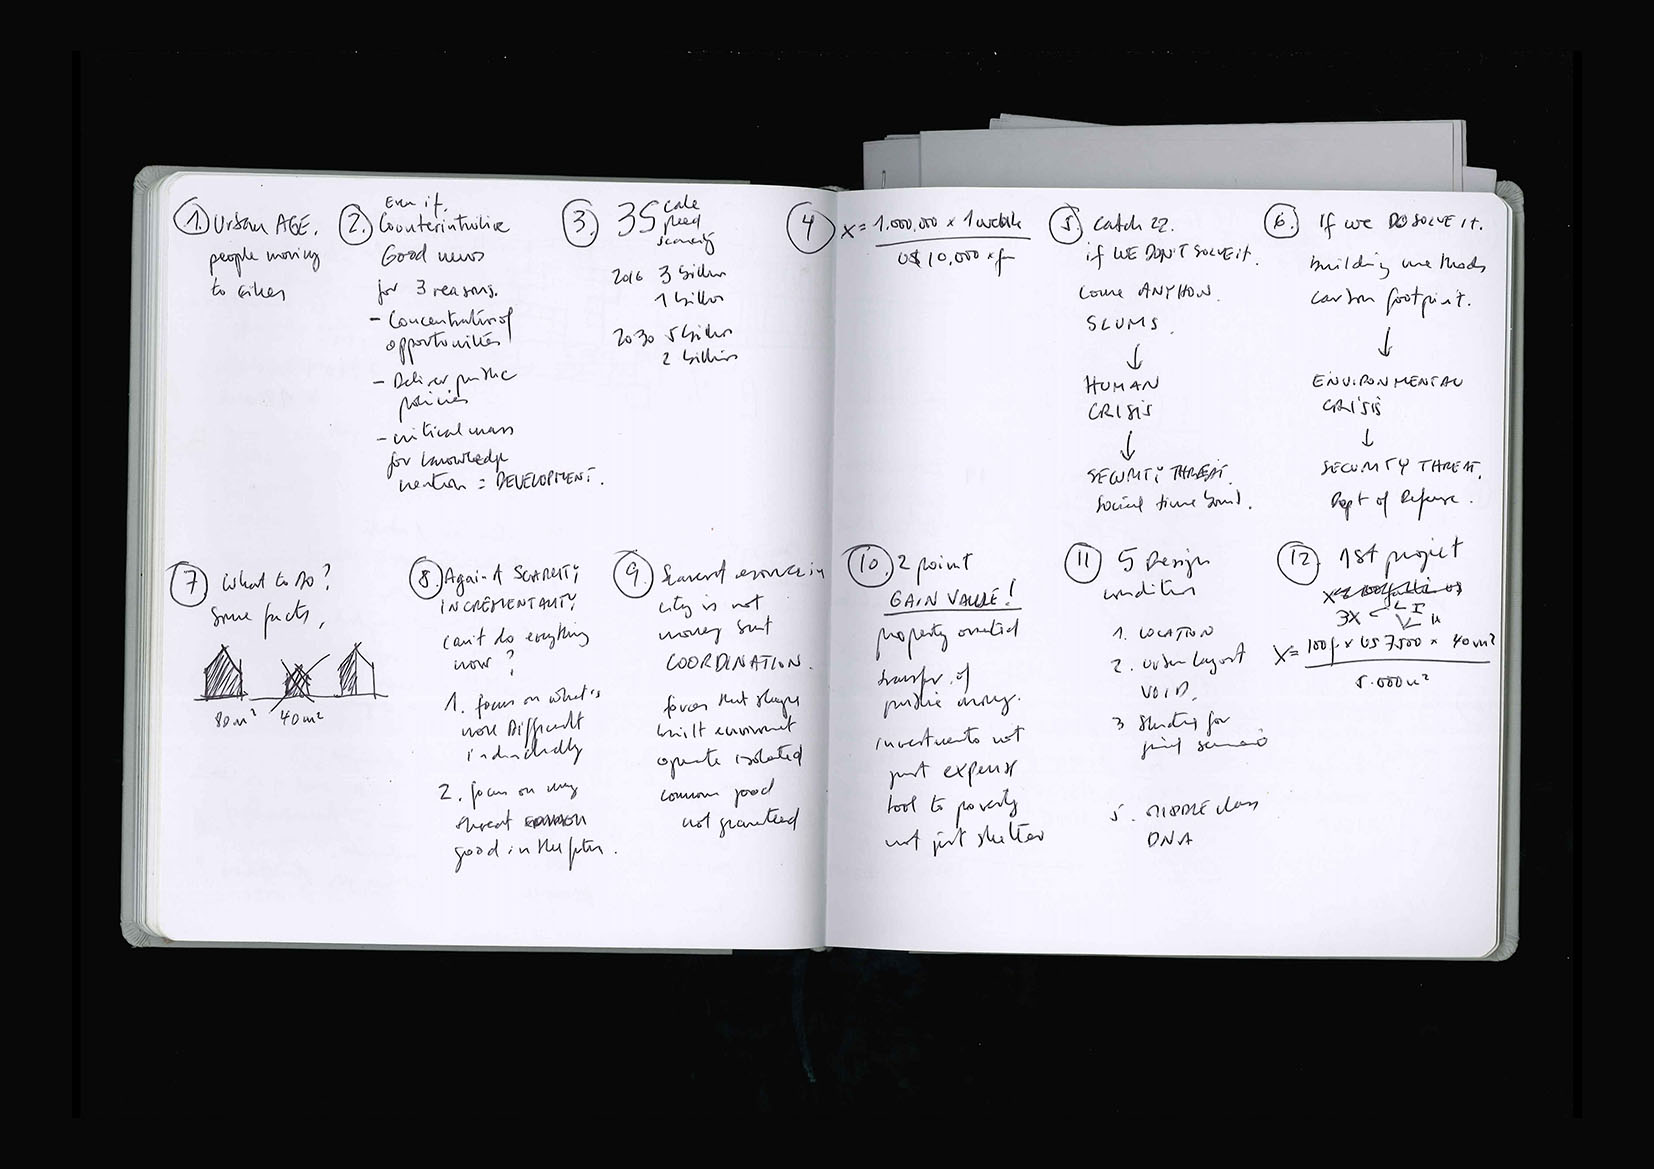 1. Urban AGE.
people moving
to cities
2. Even if.
Counterintuitive
Good news
for 3 reasons.
- Concentration of
opportunities
- Deliver public
policies
- critical mass
for knowledge
creation = DEVELOPMENT.
3. 3S cale
peed
scarcity
2016 3 billion
1 billion
2030 5 billion
2 billion
4 X = 1.000.000 x 1 week
US$ 10,000 x f
5. Catch 22.
if WE DON'T SOLVE it.
come ANYHOW.
SLUMS.
↓
HUMAN
CRISIS
↓
SECURITY THREAT.
Social time bomb.
6. If we DO SOLVE it.
building methods
carbon footprint.
↓
ENVIRONMENTAL
CRISIS
↓
SECURITY THREAT.
Dept of Defense.
7 What to do?
Some facts,
80m² 40m²
8. Against SCARCITY
INCREMENTALITY
can't do everything
now?
1. focus on what's
more Difficult
individually
2. focus on
common
good in the future.
9. Scarcest resource in
city is not
money but
COORDINATION.
forces that shape
built environment
operate isolated
common good
not guaranteed
10. 2 point
GAIN VALUE!
property oriented
transfer of
public money.
investments not
just expense
tool to poverty
not just shelter
11 5 Design
condition
1. LOCATION
2. urban layout
VOID.
3 Structure for
final scenario
5. MIDDLE class
DNA
12. 1st project
3X
X = 100 f x US 7.500 x 40m²
5.000m²